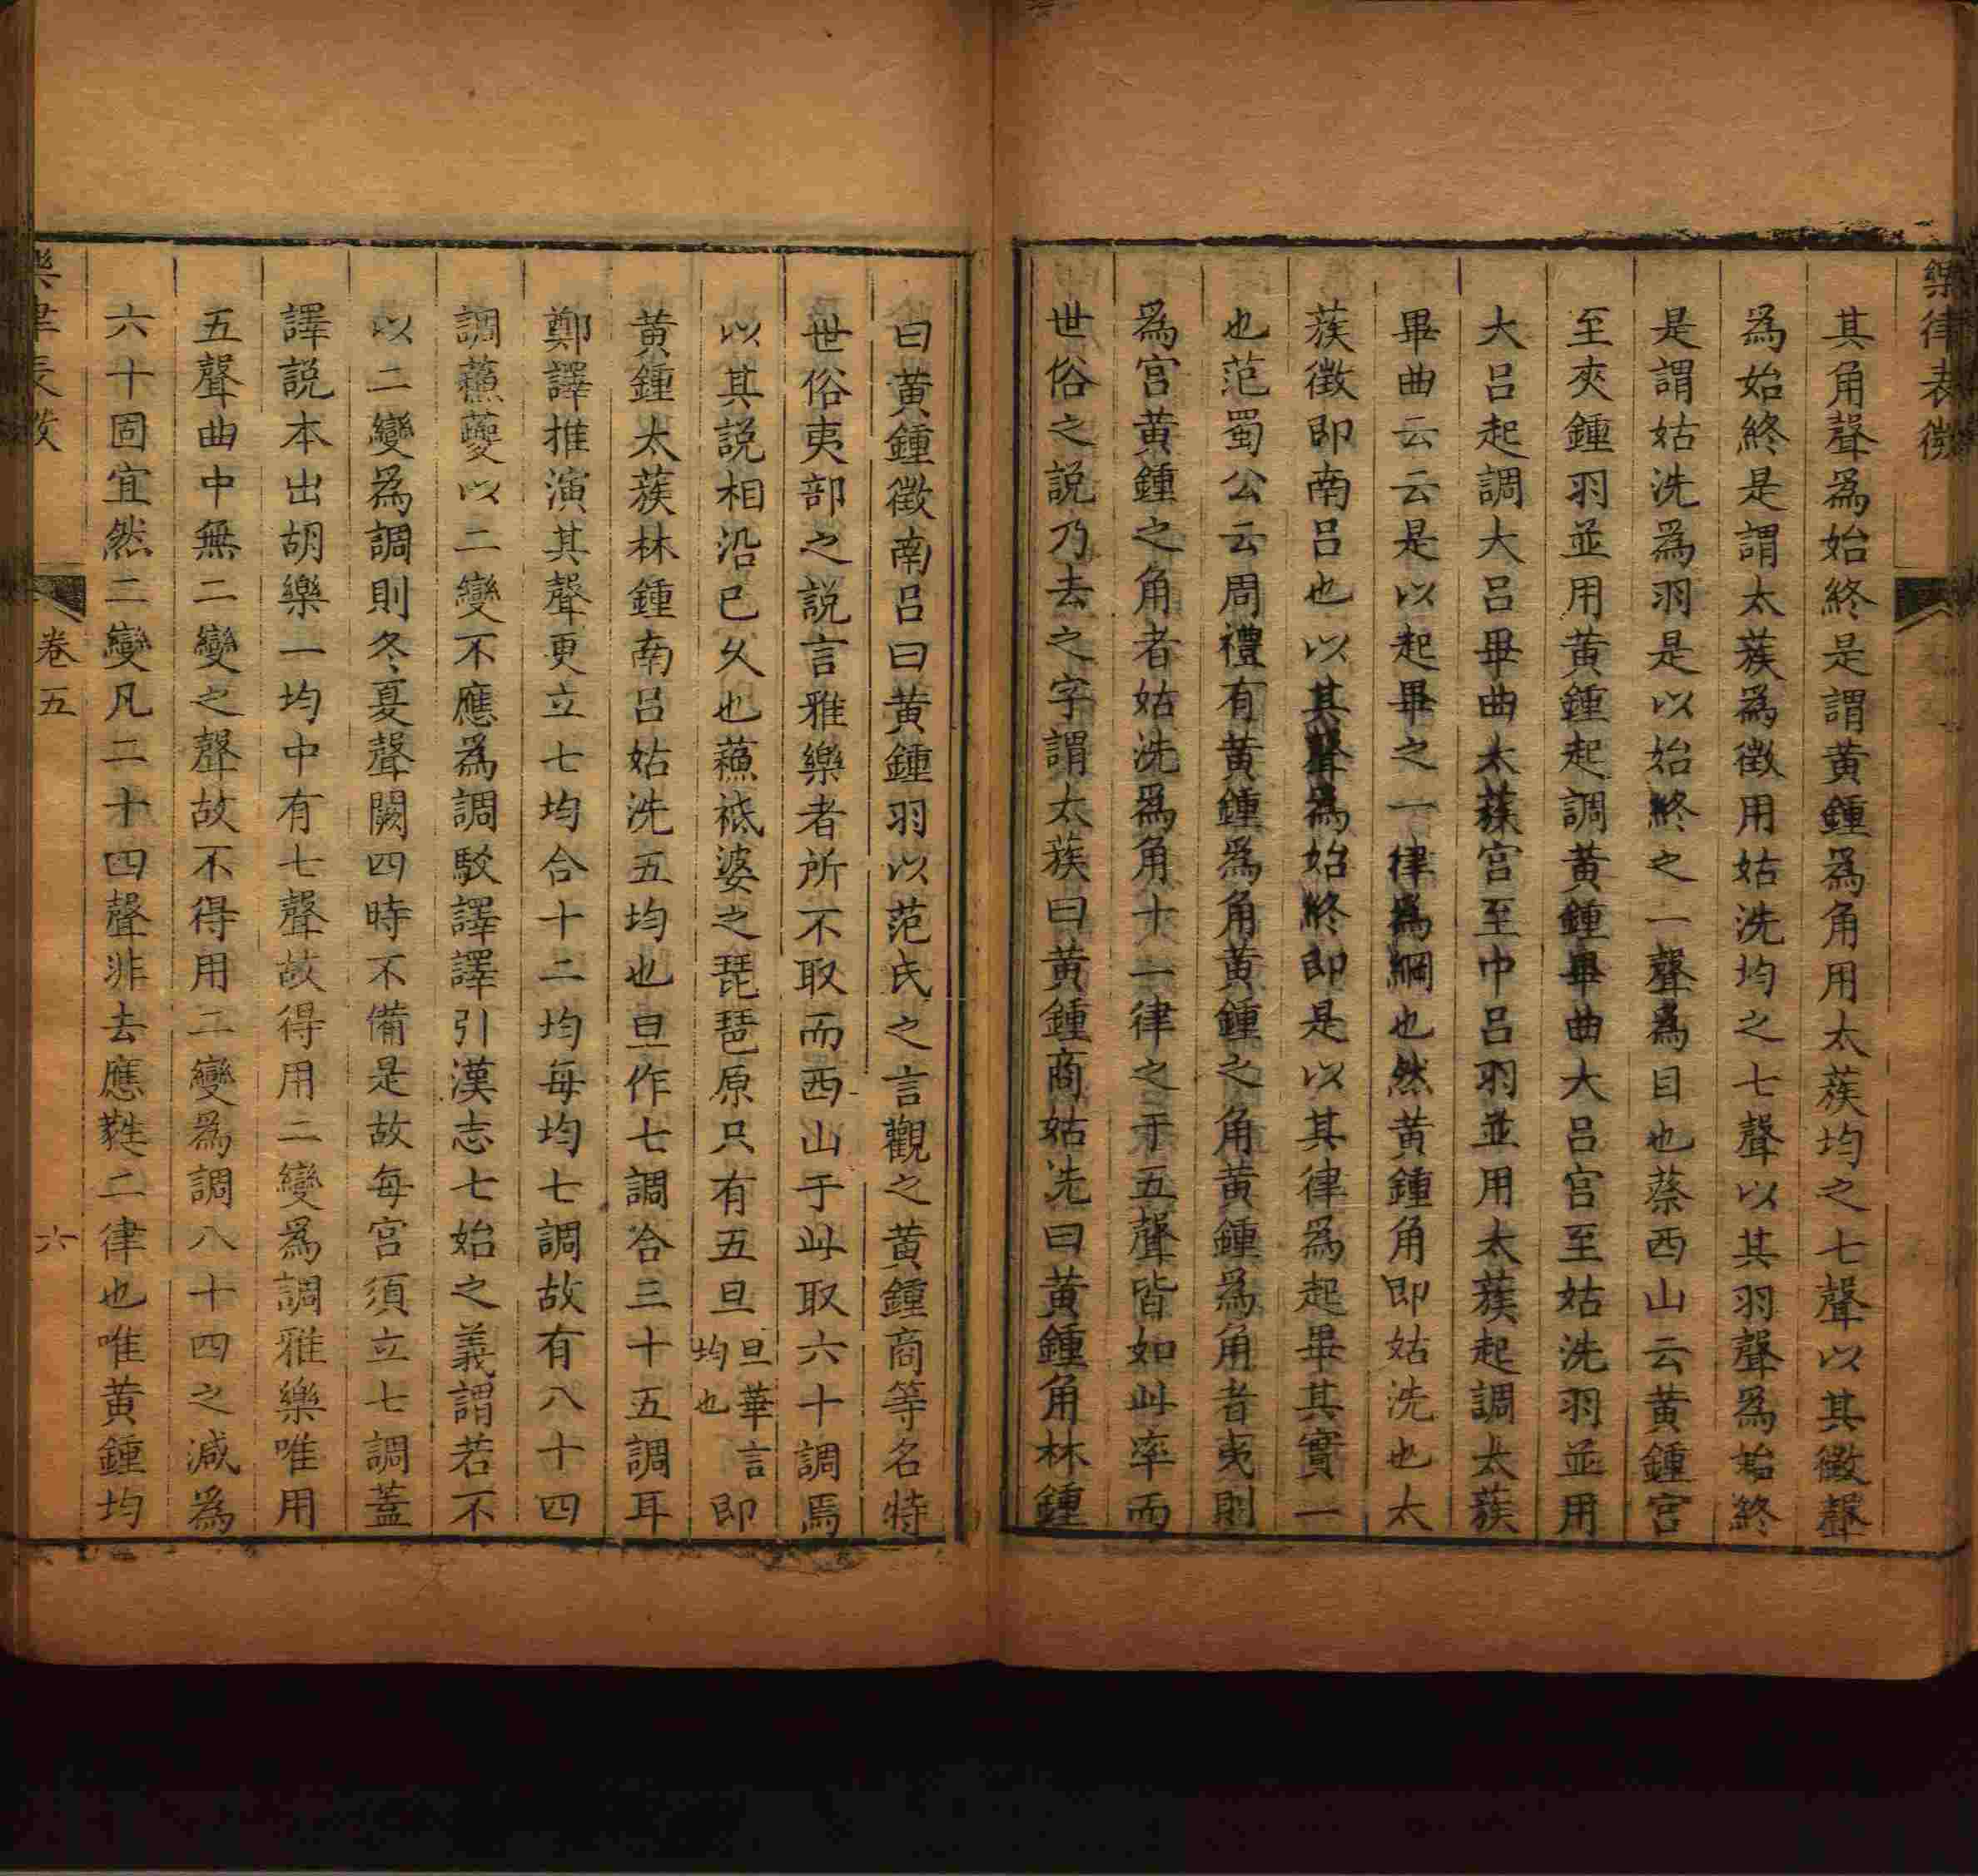 樂律表微
其角聲爲始終是謂黃鍾爲角用太蔟均之七聲以其徵聲
爲始終是謂太蔟爲徵用姑洗均之七聲以其羽聲爲始終
是謂姑洗爲羽是以始終之一聲爲目也蔡西山云黃鍾宮
至夾鍾羽並用黃鍾起調黃鍾畢曲大呂宮至姑洗羽並用
大呂起調大呂畢曲太蔟宮至中呂羽並用太蔟起調太蔟
畢曲云云是以起畢之一律爲綱也然黃鍾角即姑洗也太
蔟徵即南呂也以其聲爲始終即是以其律爲起畢其實一
也范蜀公云周禮有黃鍾爲角黃鍾之角黃鍾爲角者夷則
爲宮黃鍾之角者姑洗爲角十一律之于五聲皆如此率而
世俗之說乃去之字謂太蔟曰黃鍾商姑洗曰黃鍾角林鍾
曰黃鍾徵南呂曰黃鍾羽以范氏之言觀之黃鍾商等名特
世俗夷部之說言雅樂者所不取而西山于此取六十調焉
以其說相沿已久也蘓祗婆之琵琶原只有五旦旦華言均也即
黃鍾太蔟林鍾南呂姑洗五均也旦作七調合三十五調耳
鄭譯推演其聲更立七均合十二均每均七調故有八十四
調蘓夔以二變不應爲調駁譯譯引漢志七始之義謂若不
以二變爲調則冬夏聲闕四時不備是故每宮須立七調蓋
譯說本出胡樂一均中有七聲故得用二變爲調雅樂唯用
五聲曲中無二變之聲故不得用二變爲調八十四之減爲
六十固宜然二變凡二十四聲非去應蕤二律也唯黃鍾均
樂律表微
卷五
六